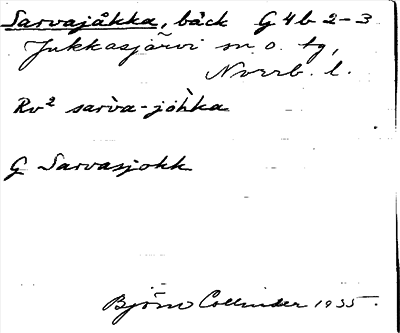 Sarvajåkka, bäck G 4 b 2-3
Jukkasjärvi sn o. tg,
Norrb. l.
Rv² sarva-johka
G Sarvasjokk
Björn Collinder 1935.